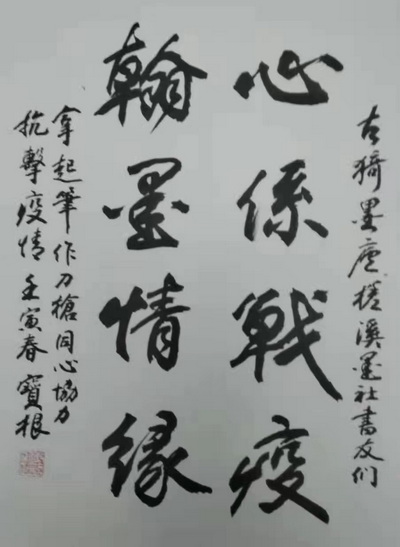 古猗墨廬槎溪墨社書友们
心係戰疫
翰墨情缘
拿起筆作刀槍同心協力
抗擊疫情壬寅春寶根